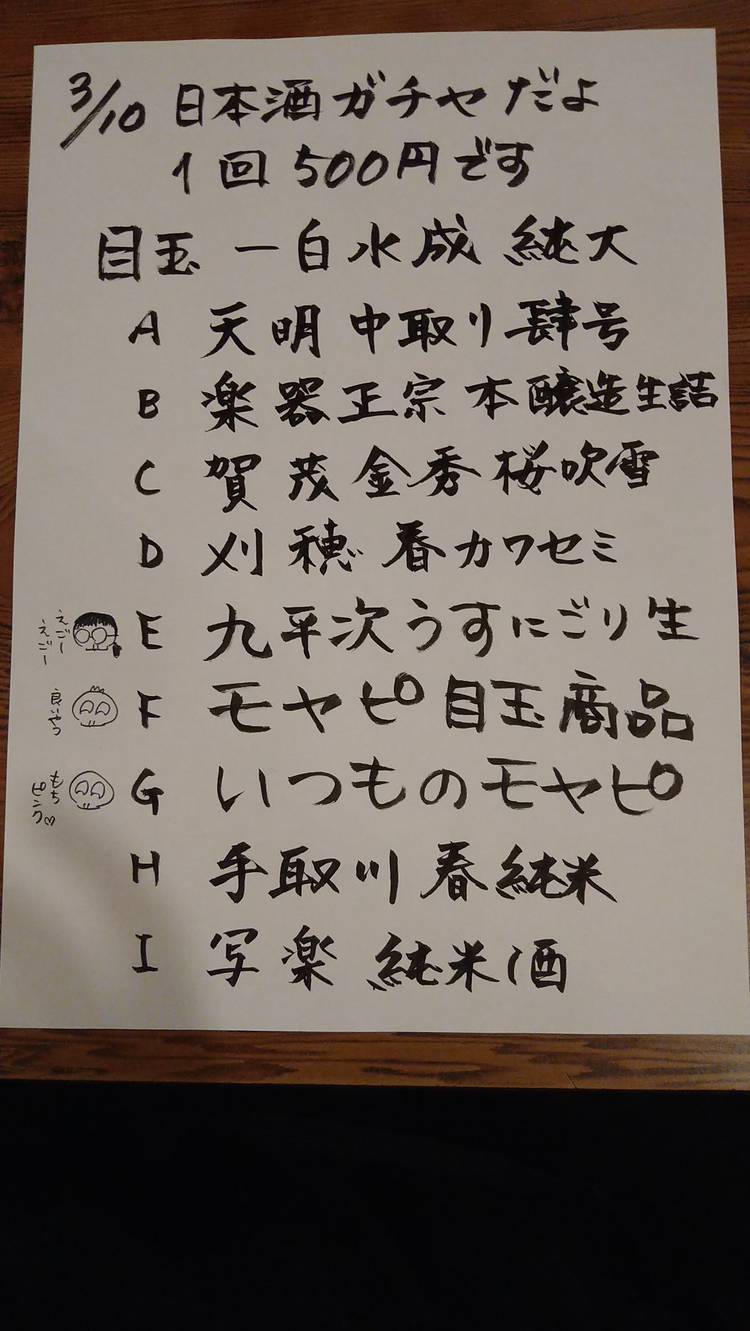 3/10 日本酒ガチャだよ
1回 500円です
目玉 一白水成 純大
A 天明 中取り肆号
B 楽器正宗 本醸造生詰
C 賀茂金秀 桜吹雪
D 刈穂 春カワセミ
えごー
えごー
E 九平次うすにごり生
良いやつ
F モヤピ目玉商品
もち
ピンク♡
G いつものモヤピ
H 手取川 春純米
I 写楽 純米酒